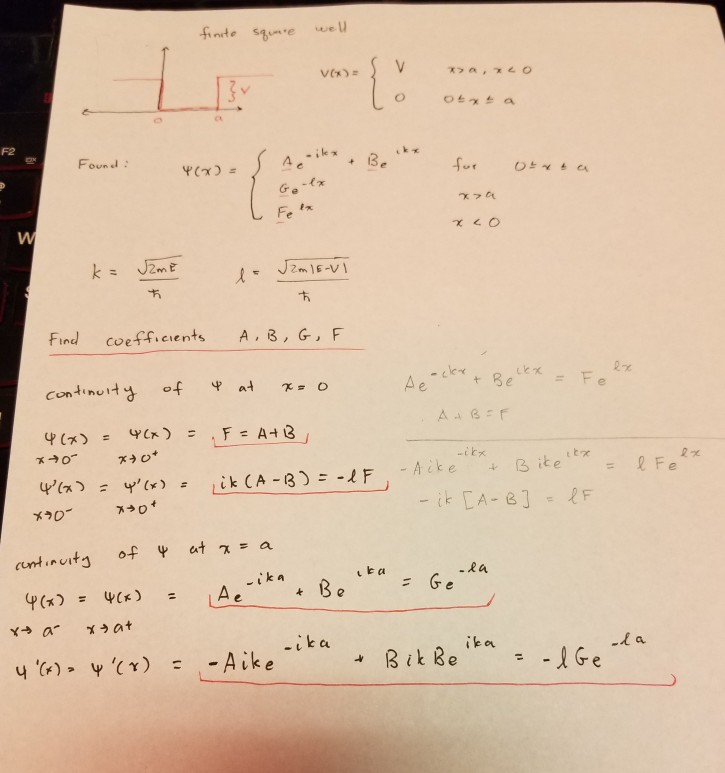 finite square well
V
0 a
V(x) = { V x>a, x<0
0 0≤x≤a
Found: Ψ(x) = { Ae^-ikx + Be^ikx for 0≤x≤a
Ge^-lx x>a
Fe^lx x<0
k = √2mE / ħ l = √2m|E-V| / ħ
Find coefficients A, B, G, F
continuity of Ψ at x=0
Ae^-ikx + Be^ikx = Fe^lx
A+B=F
Ψ(x) = Ψ(x) = F = A+B
x→0^- x→0^+
-Aike^-ikx + Bike^ikx = lFe^lx
Ψ'(x) = Ψ'(x) = ik(A-B) = -lF
x→0^- x→0^+
-ik[A-B] = lF
continuity of Ψ at x=a
Ψ(x) = Ψ(x) = Ae^-ika + Be^ika = Ge^-la
x→a^- x→a^+
Ψ'(x) = Ψ'(x) = -Aike^-ika + BikBe^ika = -lGe^-la
F2
W